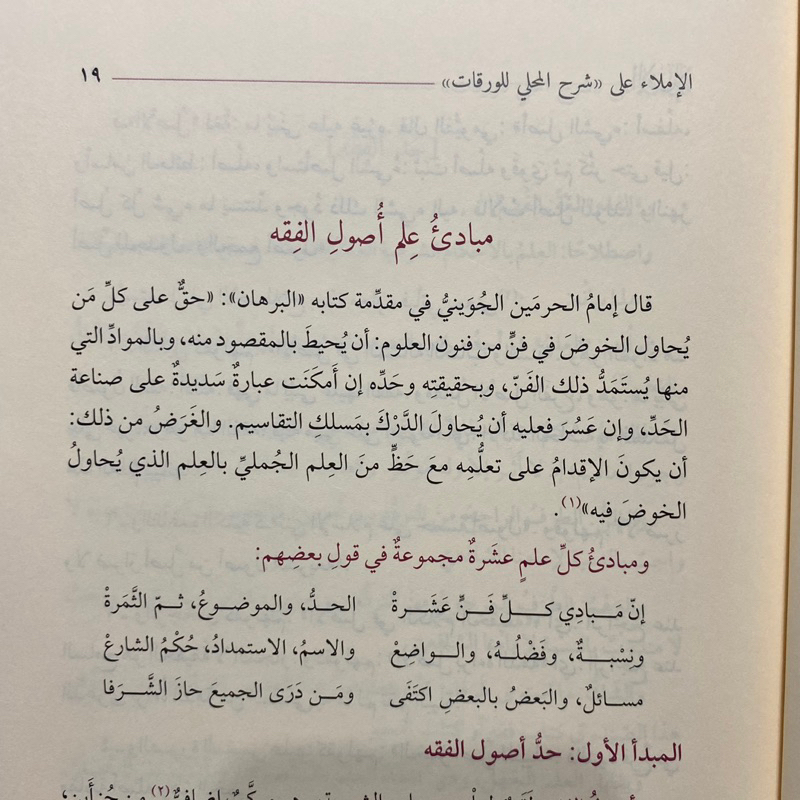 الإملاء على «شرح المحلي للورقات» ١٩
مبادئُ عِلم أُصولِ الفِقه
قال إمامُ الحرمَين الجُوَينيُّ في مقدِّمة كتابه «البرهان»: «حقٌّ على كلِّ مَن
يُحاول الخوضَ في فنٍّ من فنون العلوم: أن يُحيطَ بالمقصود منه، وبالموادِّ التي
منها يُستَمَدُّ ذلك الفَنّ، وبحقيقتِه وحَدِّه إن أَمكَنَت عبارةٌ سَديدةٌ على صناعة
الحَدِّ، وإن عَسُرَ فعليه أن يُحاولَ الدَّرْكَ بمَسلكِ التقاسيم. والغَرَضُ من ذلك:
أن يكونَ الإقدامُ على تعلُّمِه معَ حَظٍّ منَ العِلم الجُمليِّ بالعِلم الذي يُحاولُ
الخوضَ فيه»(١).
ومبادئُ كلِّ علمٍ عشَرةٌ مجموعةٌ في قولِ بعضِهم:
إنّ مَـبَـادِي كـلِّ فَـنٍّ عَـشَـرةْ الحدُّ، والموضوعُ، ثـمّ الثَّمَرةْ
ونِسْبـةٌ، وفَضْلُـهُ، والـواضِعْ والاسمُ، الاستمدادُ، حُكْمُ الشارعْ
مسـائلٌ، والبَعضُ بالبعضِ اكتَفَى ومَـن دَرَى الجميعَ حازَ الشَّـرَفا
المبدأ الأول: حدُّ أصول الفقه